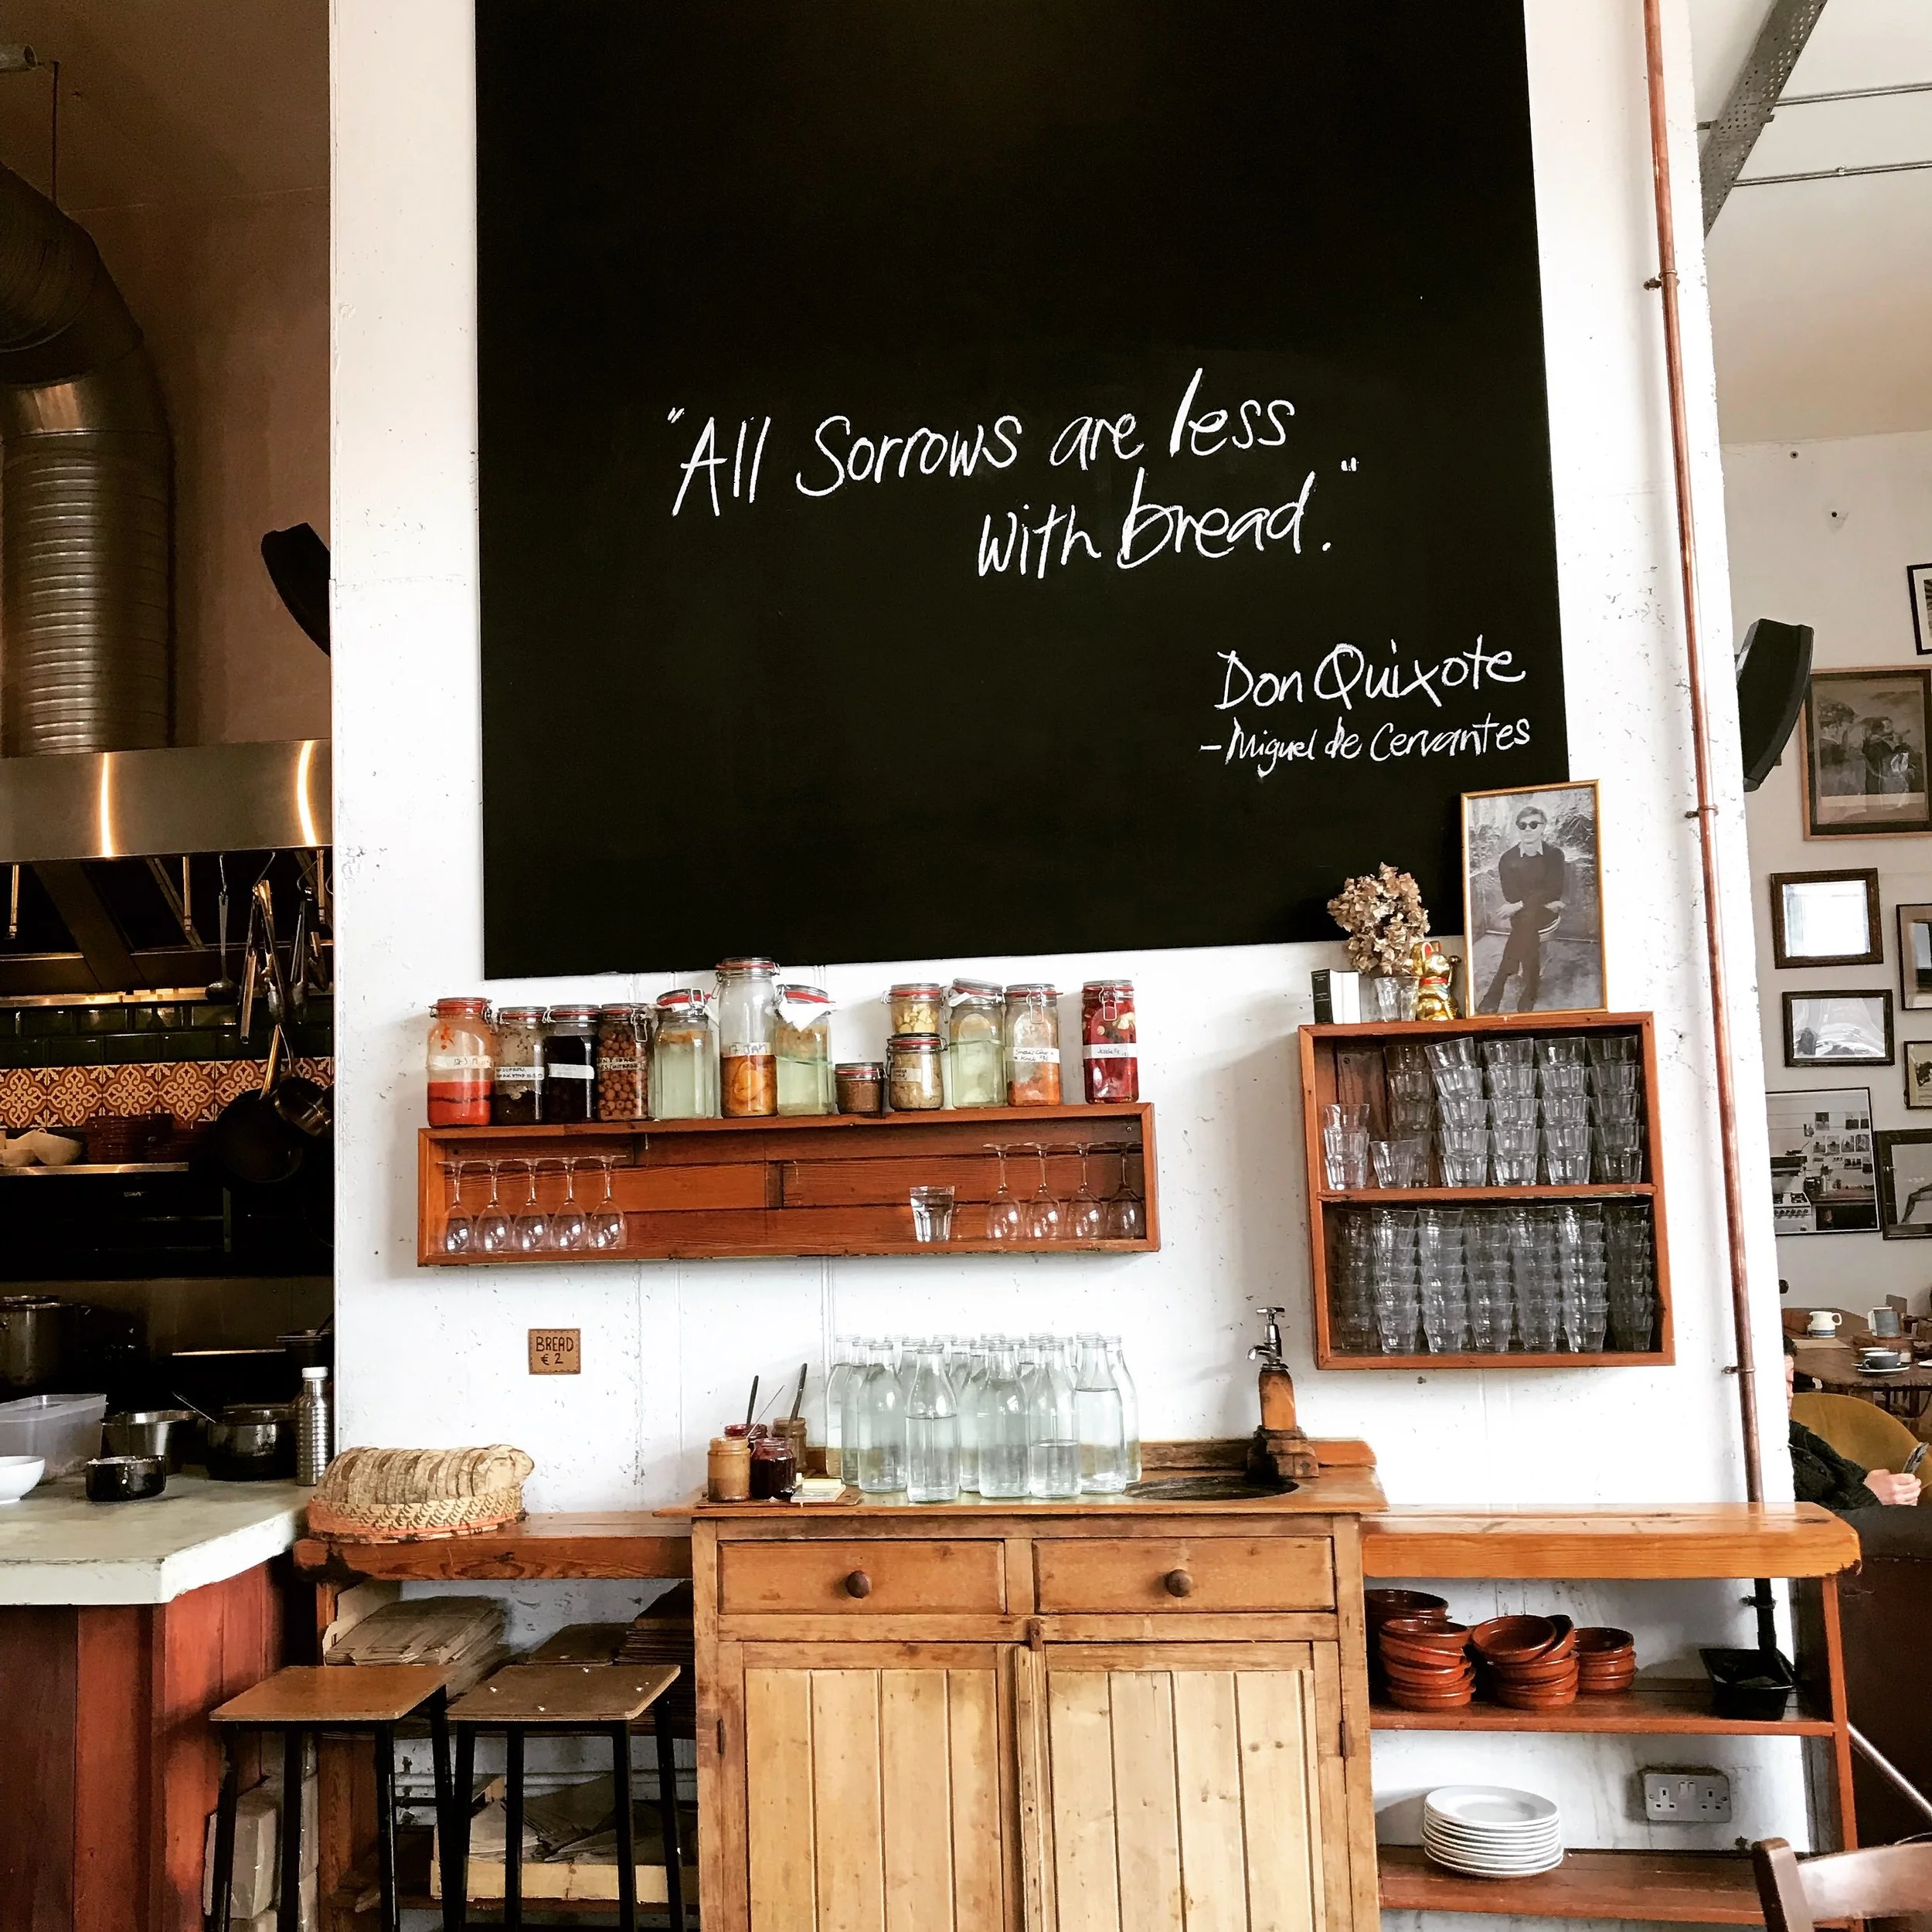 "All Sorrows are less
with bread."
Don Quixote
- Miguel de Cervantes
BREAD
€2